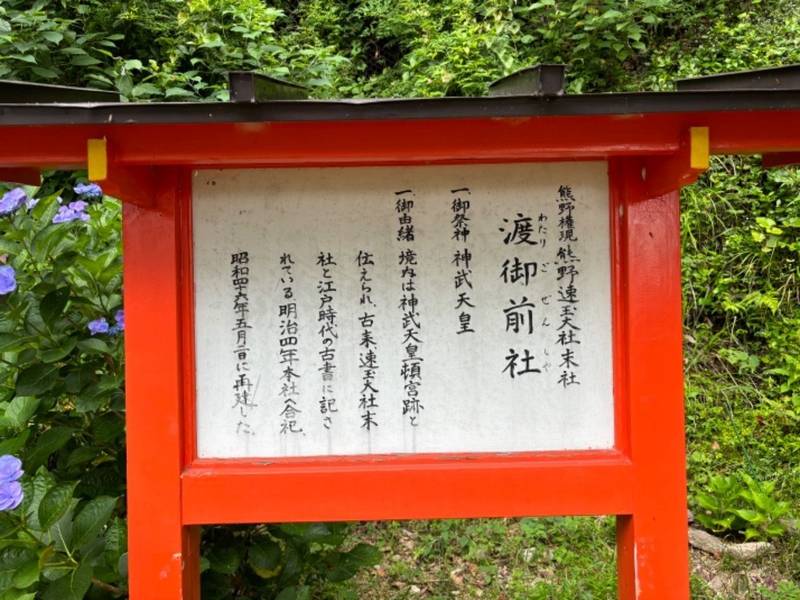 熊野権現 熊野速玉大社末社
渡御前社
わたりごぜんしや
一、御祭神 神武天皇
一、御由緒 境内は神武天皇頓宮跡と
伝えられ、古来、速玉大社末
社と江戸時代の古書に記さ
れている。明治四年本社へ合祀、
昭和四十六年五月一日に再建した。